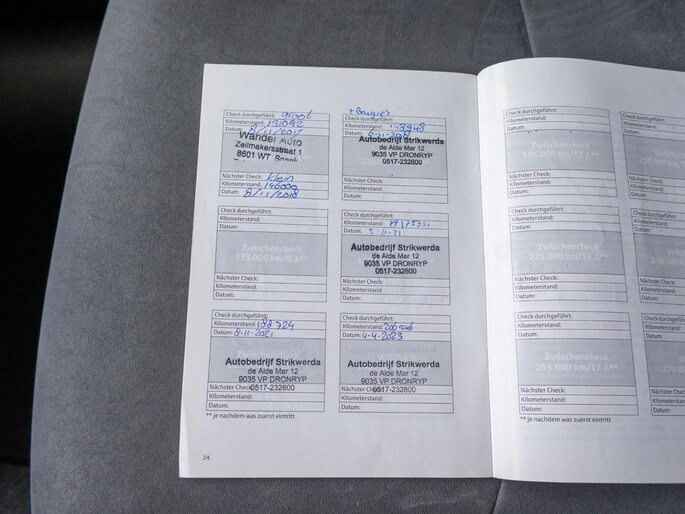 Check durchgeführt: groot
Kilometerstand: 131092
Datum: 8/11/2017
Wander Auto
Zeilmakersstraat 1
8601 WT
Nächster Check: Klein
Kilometerstand: 146000
Datum: 8/11/2018
+ Bougies
Check durchgeführt:
Kilometerstand:
Datum:
Autobedrijf Strikwerda
de Alde Mar 12
9035 VP DRONRYP
0517-232800
Nächster Check:
Kilometerstand:
Datum:
Check durchgeführt:
Kilometerstand:
Datum:
Zwischencheck
Nächster Check:
Kilometerstand:
Datum:
Check durchgeführt:
Kilometerstand:
Datum:
Autobedrijf Strikwerda
de Alde Mar 12
9035 VP DRONRYP
0517-232800
Nächster Check:
Kilometerstand:
Datum:
Check durchgeführt:
Kilometerstand: 188724
Datum: 8-11-2021
Autobedrijf Strikwerda
de Alde Mar 12
9035 VP DRONRYP
Nächster Check: 0517-232800
Kilometerstand:
Datum:
Check durchgeführt:
Kilometerstand:
Datum: 4-4-2023
Autobedrijf Strikwerda
de Alde Mar 12
9035 VP DRONRYP
Nächster Check: 0517-232800
Kilometerstand:
Datum:
** je nachdem was zuerst eintritt
24
Check durchgeführt:
Kilometerstand:
Datum:
Zwischencheck
Nächster Check:
Kilometerstand:
Datum:
Check durchgeführt:
Kilometerstand:
Datum:
Zwischencheck
225.000 km/15 J.**
Nächster Check:
Kilometerstand:
Datum:
Check durchgeführt:
Kilometerstand:
Datum:
Zwischencheck
255.000 km/17 J.**
Nächster Check:
Kilometerstand:
Datum:
** je nachdem was zuerst eintritt